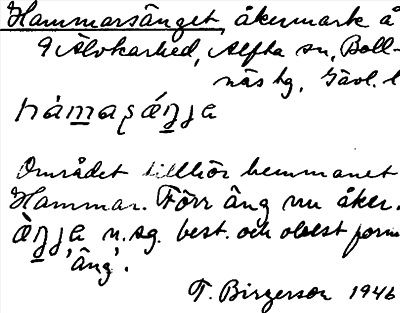 Hammarsänget, åkermark å
Älvkarhed, Alfta sn, Boll-
näs hg, Gävl. l
Området tillhör hemmanet
Hammar. Förr äng nu åker.
n. sg. best. och obest form
'äng'.
T. Birgerson 1946